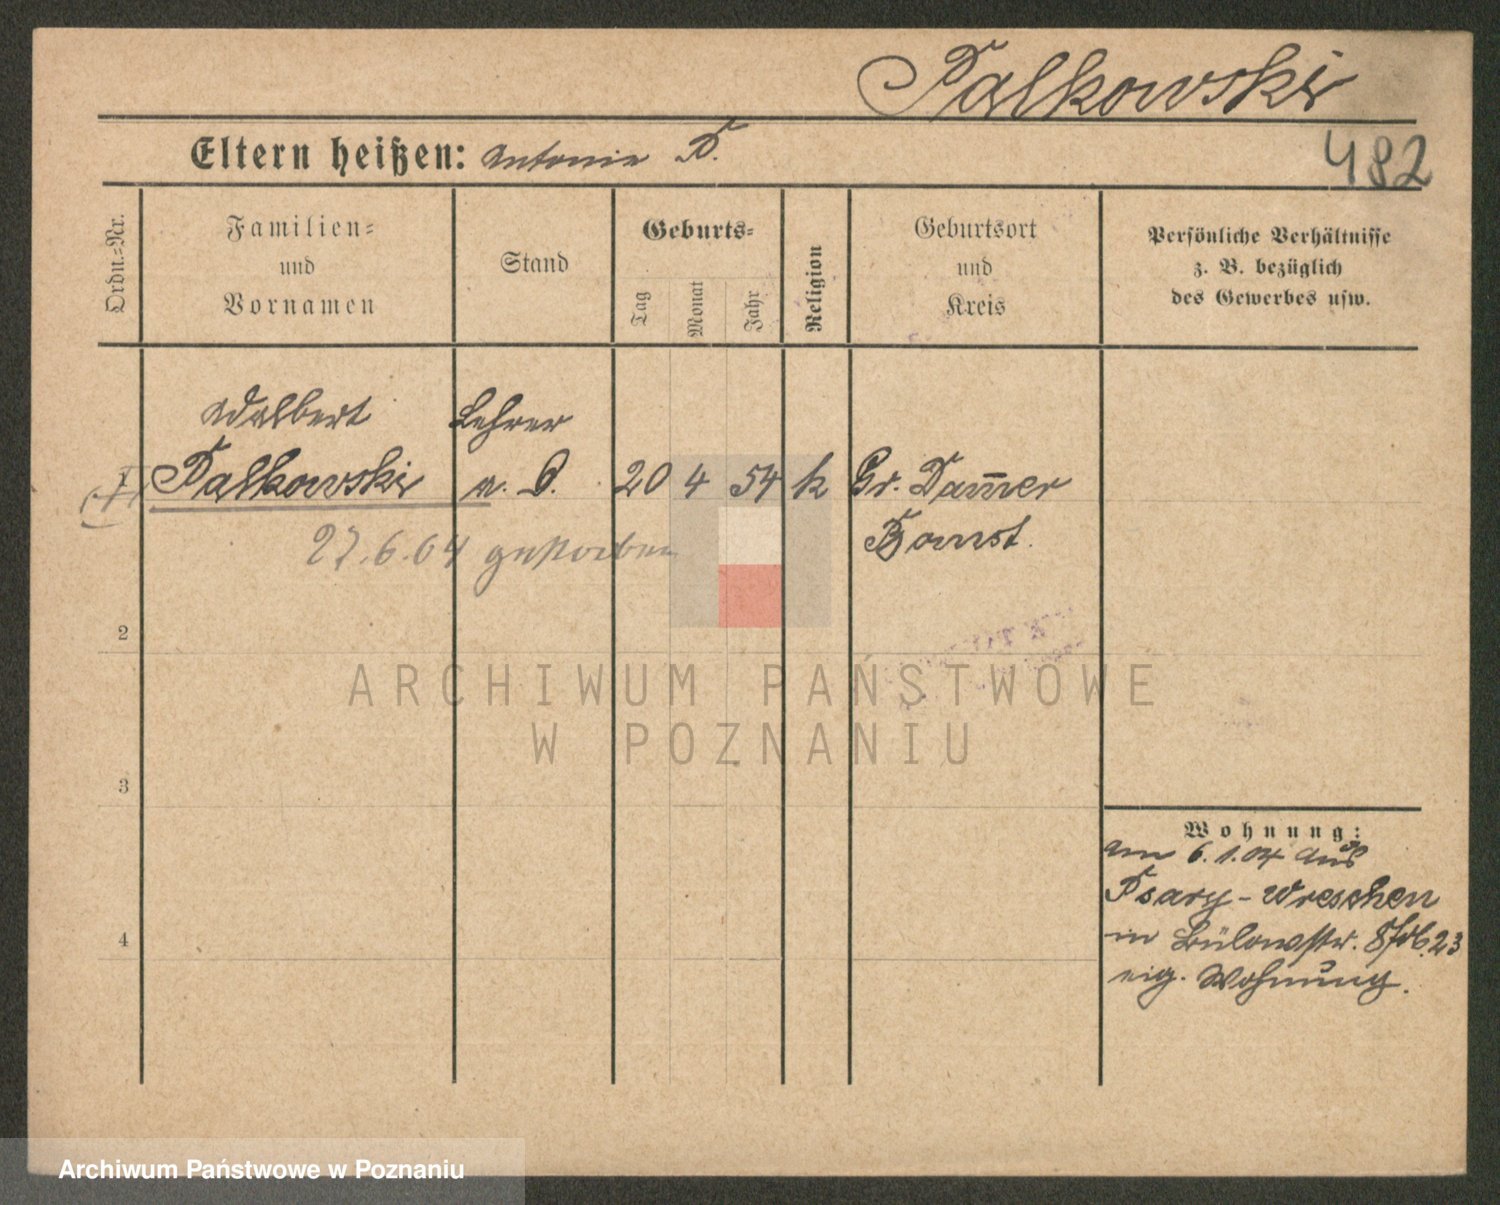 Palkowski
Eltern heißen: Antonie P.
482
Ordn.=Nr.
Familien=
und
Vornamen
Stand
Geburts=
Tag
Monat
Jahr
Religion
Geburtsort
und
Kreis
Persönliche Verhältnisse
z. B. bezüglich
des Gewerbes usw.
Adalbert Lehrer
1 Palkowski a. D. 20 4 54 k Gr. Dam̅er
27.6.04 gestorben Bomst.
2
3
4
Wohnung:
am 6.1.04 aus
Psary - Wreschen
in Bülowstr. 8 23
eig. Wohnung.
ARCHIWUM PAŃSTWOWE
W POZNANIU
Archiwum Państwowe w Poznaniu